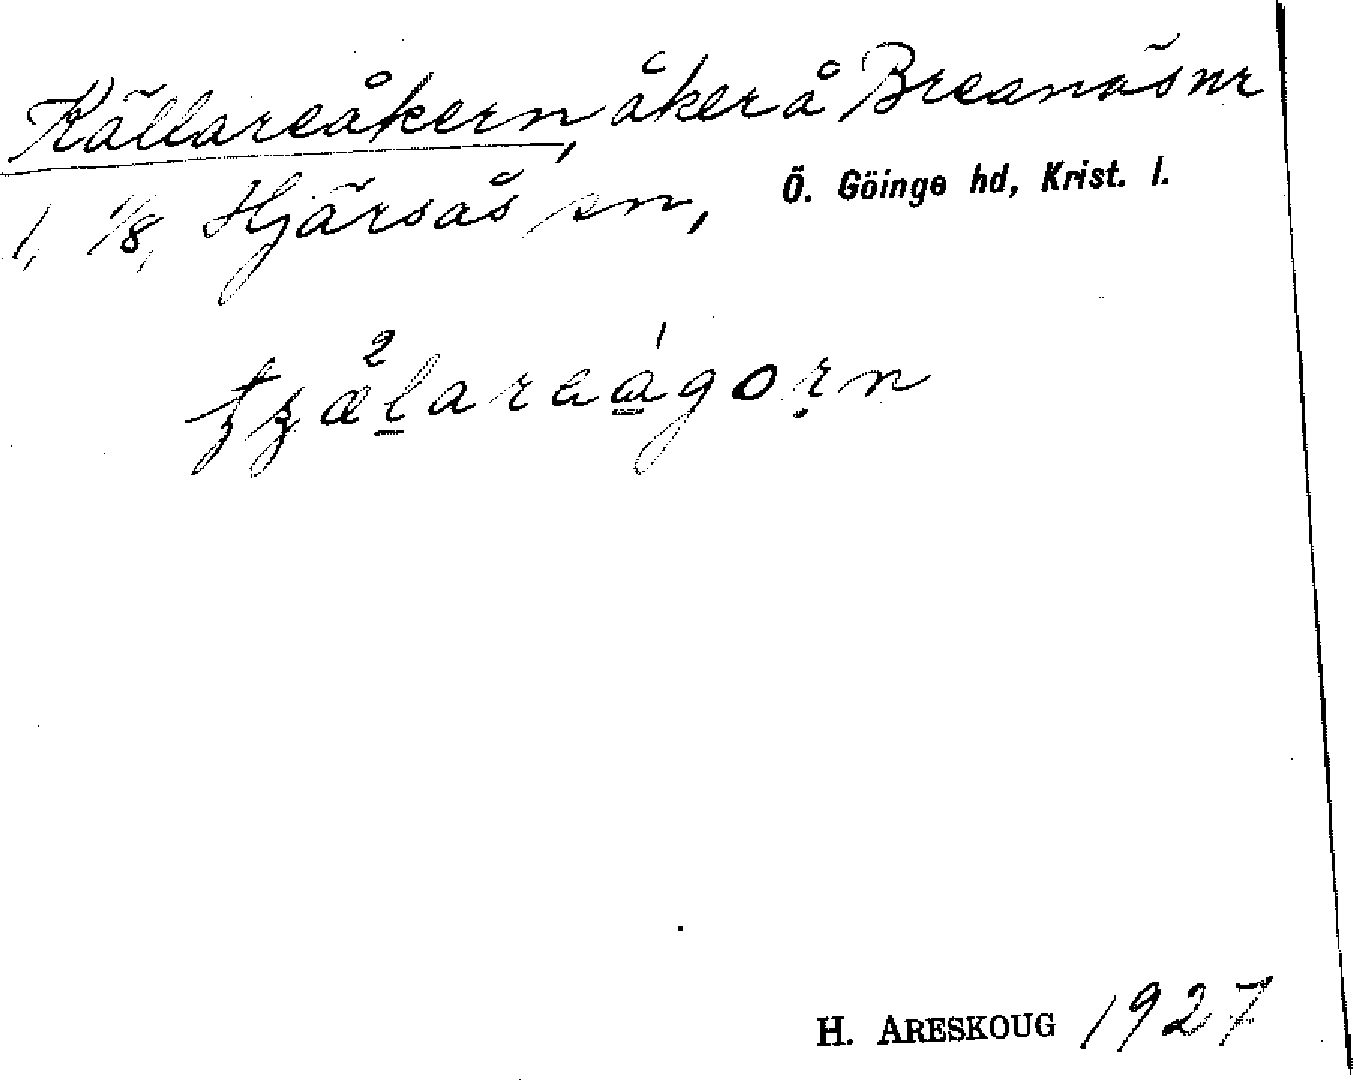 Källareåkern, åker å Breanäs nr
1, 1/8, Hjärsås sn, Ö. Göinge hd, Krist. l.
H. ARESKOUG 1927